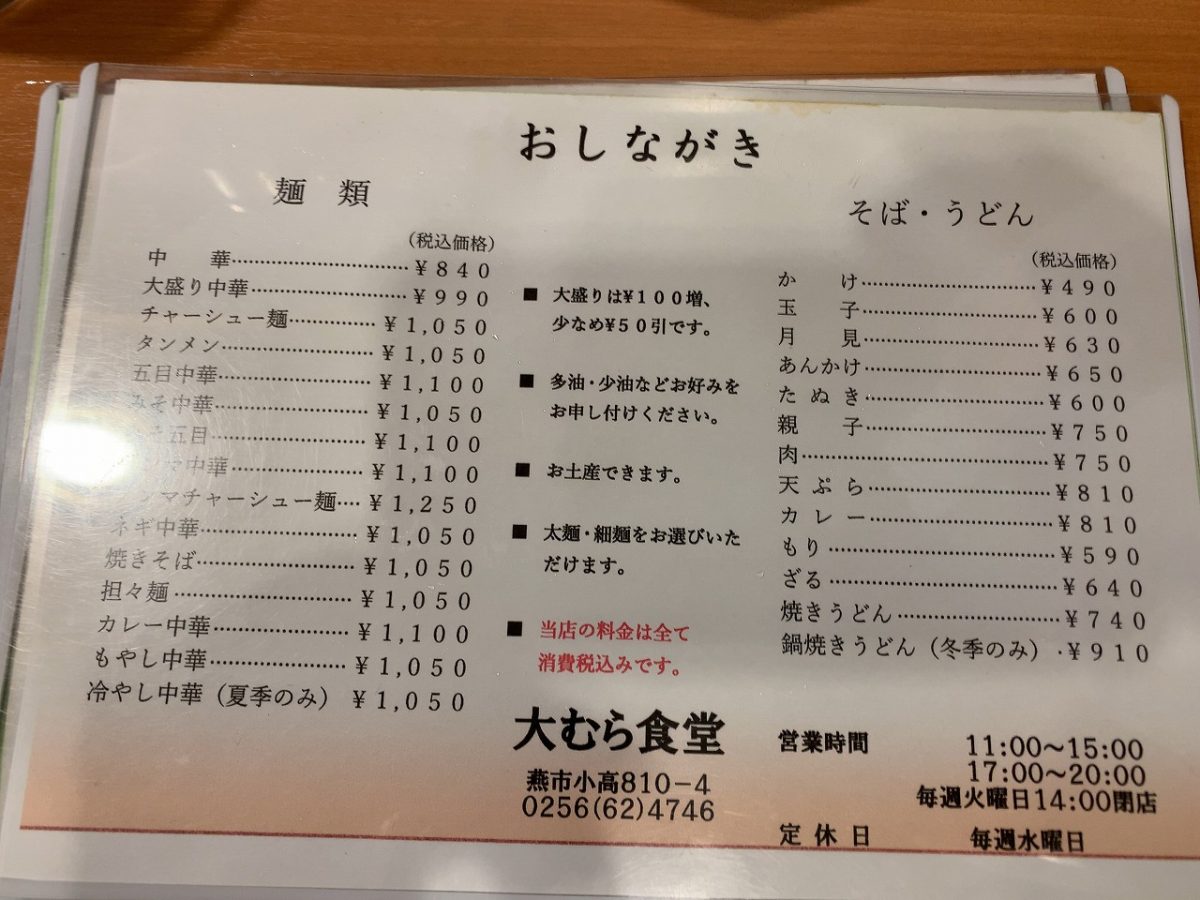 おしながき
麺 類
(税込価格)
中 華…………………………¥840
大盛り中華……………………¥990
チャーシュー麺……………¥1,050
タンメン……………………¥1,050
五目中華……………………¥1,100
みそ中華……………………¥1,050
五目……………………¥1,100
中華……………………¥1,100
マチャーシュー麺…¥1,250
ネギ中華……………………¥1,050
焼きそば……………………¥1,050
担々麺………………………¥1,050
カレー中華…………………¥1,100
もやし中華…………………¥1,050
冷やし中華(夏季のみ) ¥1,050
■ 大盛りは¥100増、
少なめ¥50引です。
■ 多油・少油などお好みを
お申し付けください。
■ お土産できます。
■ 太麺・細麺をお選びいた
だけます。
■ 当店の料金は全て
消費税込みです。
そば・うどん
(税込価格)
か け…………………………¥490
玉 子…………………………¥600
月 見…………………………¥630
あんかけ………………………¥650
た ぬ き………………………¥600
親 子…………………………¥750
肉………………………………¥750
天 ぷ ら………………………¥810
カ レ ー………………………¥810
もり……………………………¥590
ざる……………………………¥640
焼きうどん……………………¥740
鍋焼きうどん(冬季のみ)・¥910
大むら食堂
燕市小高810-4
0256(62)4746
営業時間 11:00〜15:00
17:00〜20:00
毎週火曜日14:00閉店
定 休 日 毎週水曜日